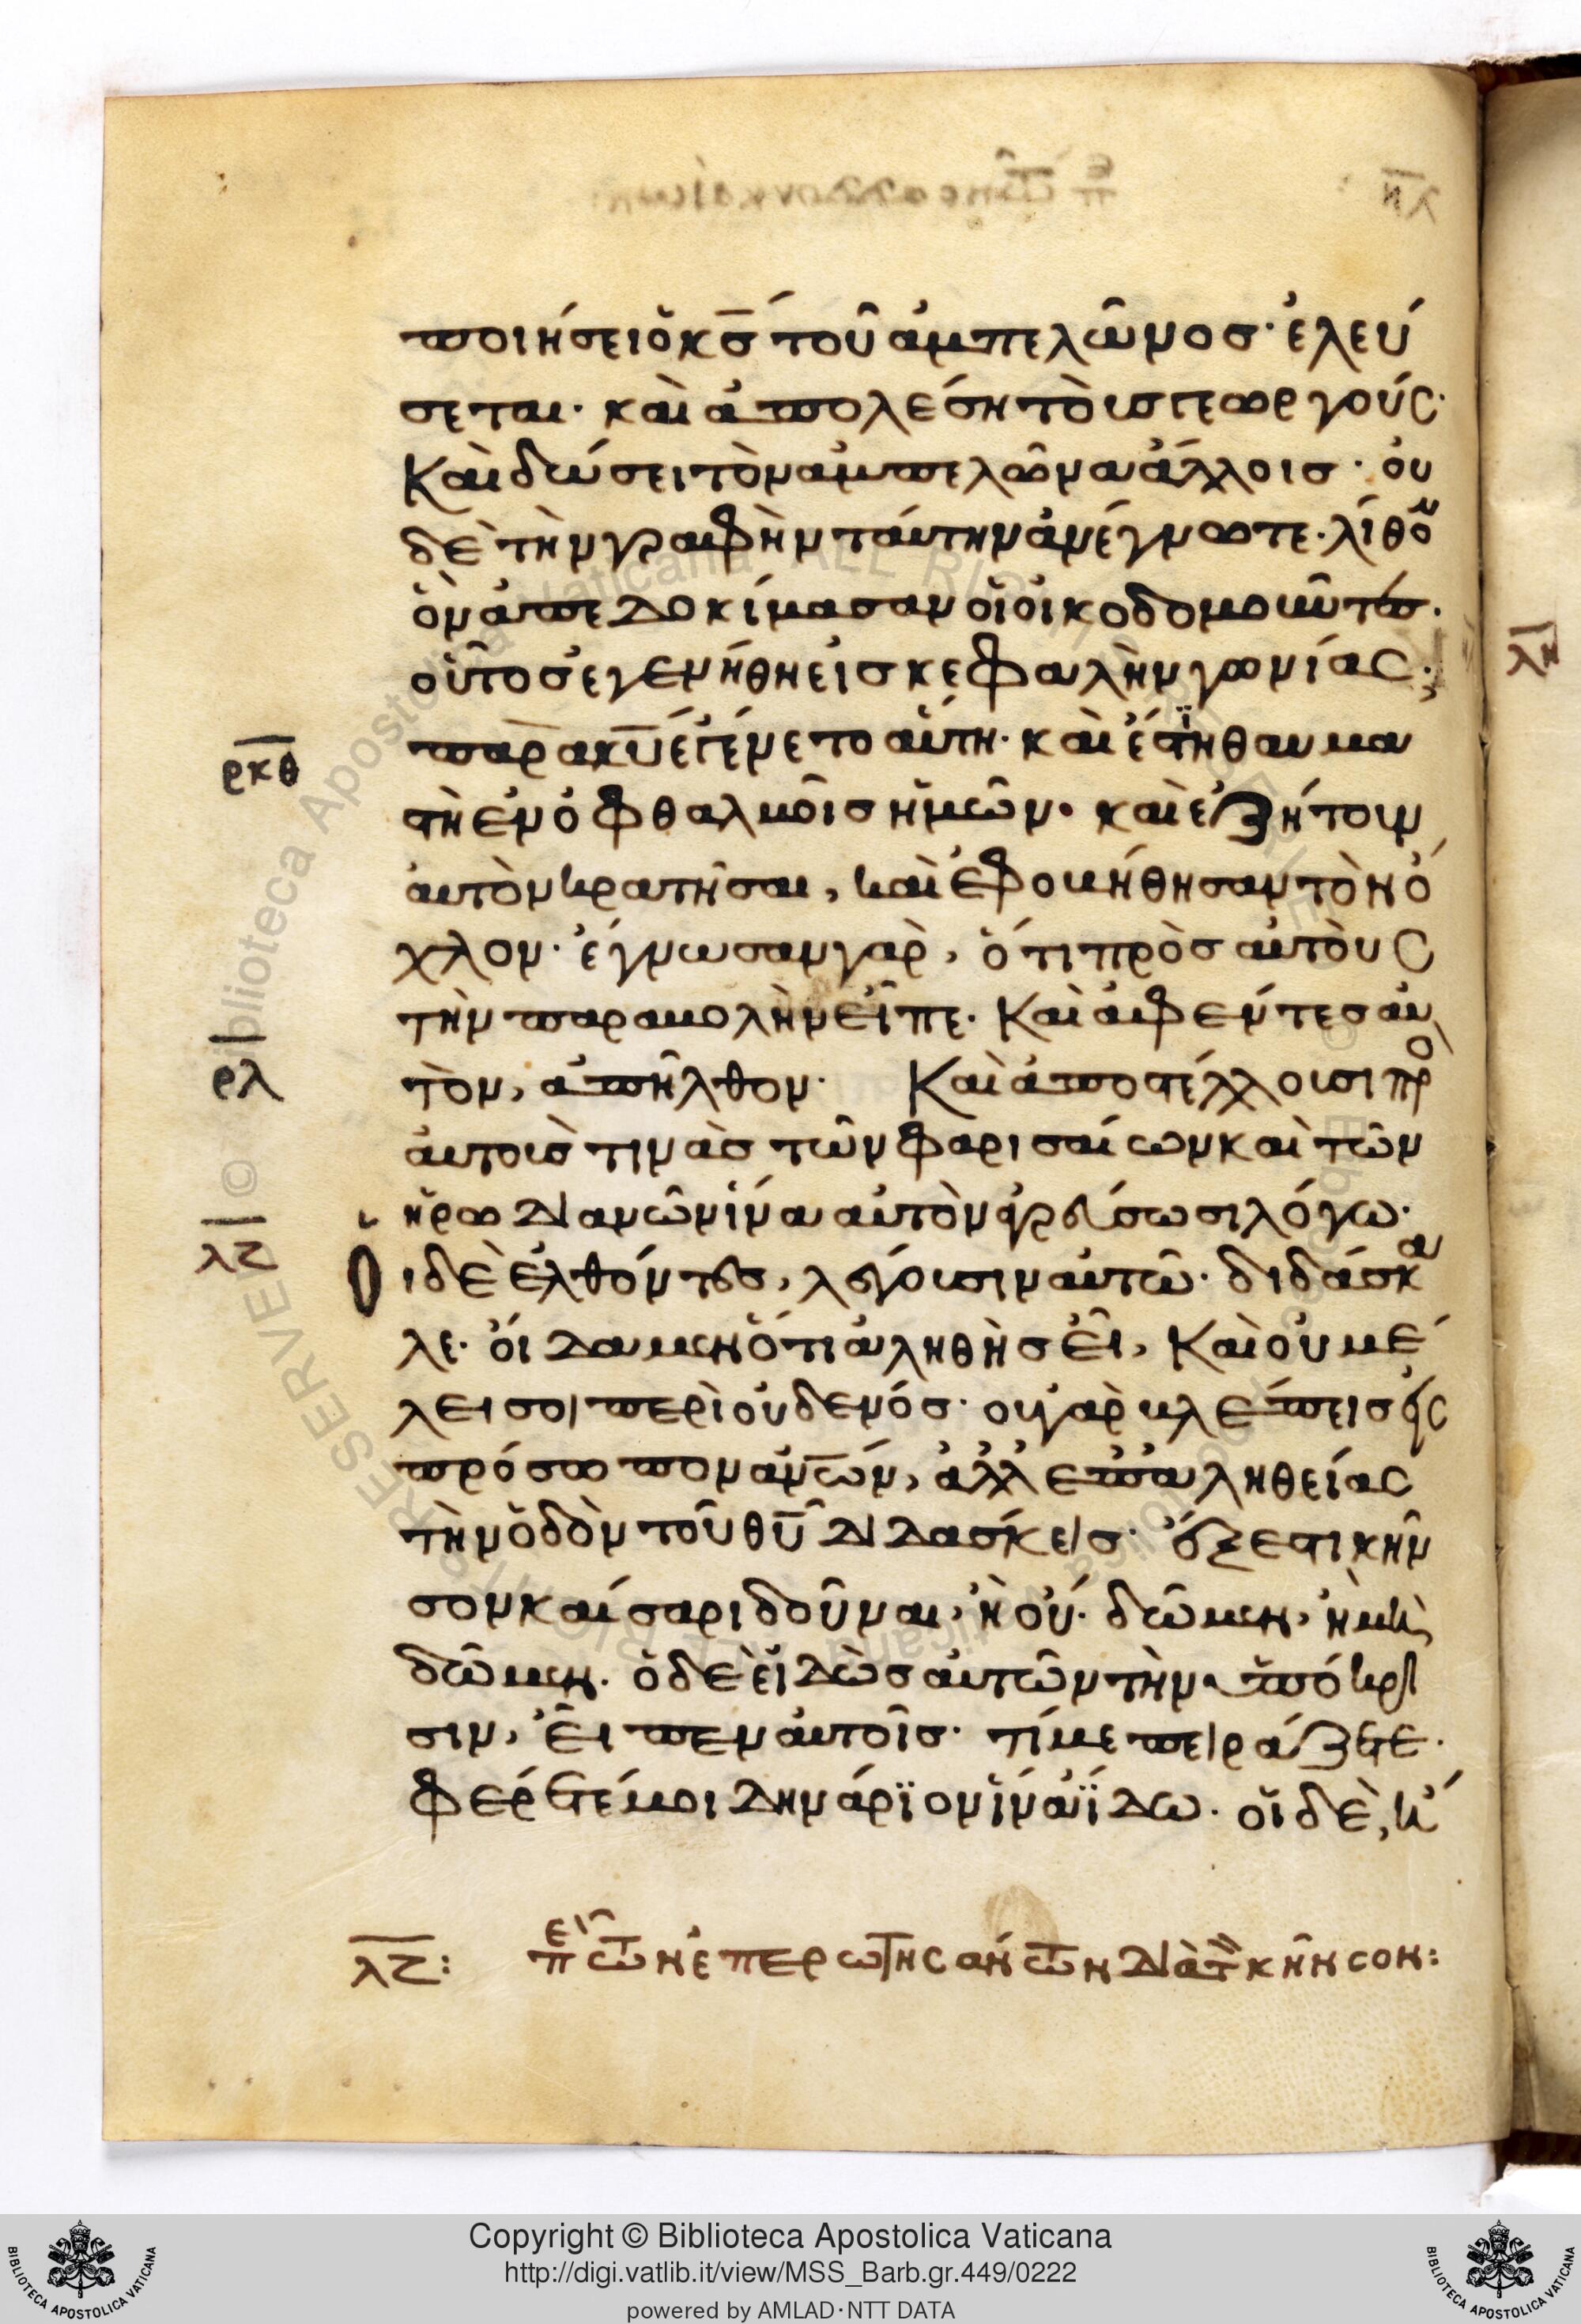 ποιήσει ὁ κ̅ς̅ τοῦ ἀμπελῶνος· ἐλεύ
σεται· καὶ ἀπολέση τοὺς γεωργούς·
Καὶ δώσει τὸν ἀμπελῶνα ἄλλοις· οὐ
δὲ τὴν γραφὴν ταύτην ἀνέγνωτε· λίθον
ὃν ἀπεδοκίμασαν οἱ οἰκοδομοῦντες·
οὗτος ἐγενήθη εἰς κεφαλὴν γωνίας·
ρκθ παρὰ κ̅υ̅ ἐγένετο αὕτη· καὶ ἔστι θαυμα
στὴ ἐν ὀφθαλμοῖς ἡμῶν· καὶ ἐζήτουν
αὐτὸν κρατῆσαι, καὶ ἐφοβήθησαν τὸν ὄ
χλον· ἔγνωσαν γὰρ, ὅτι πρὸς αὐτοὺς
τὴν παραβολὴν εἶπε· Καὶ ἀφέντες αὐ
ρλ τὸν, ἀπῆλθον· Καὶ ἀποστέλλουσι πρὸς
αὐτοὺς τινὰς τῶν φαρισαίων καὶ τῶν
λζ ἡρωδιανῶν ἵνα αὐτὸν ἀγρεύσωσι λόγω·
Οἱ δὲ ἐλθόντες, λέγουσιν αὐτῶ· διδάσκα
λε· οἴδαμεν ὅτι ἀληθὴς εἶ, Καὶ οὐ μέ
λει σοι περὶ οὐδενός· οὐ γὰρ βλέπεις εἰς
πρόσωπον ἀ̅ν̅ω̅ν̅, ἀλλ ἐπ ἀληθείας
τὴν ὁδὸν τοῦ θ̅υ̅ διδάσκεις· ἔξεστι κῆν
σον καίσαρι δοῦναι, ἢ οὔ· δῶμεν, ἢ μὴ
δῶμεν· ὁ δὲ εἰδὼς αὐτῶν τὴν ὑπόκρι
σιν, εἶπεν αὐτοῖς· τί με πειράζετε·
φέρετέ μοι δηνάριον ἵνα ἴδω· οἱ δὲ, ἤ
λζ: περὶ τῶν ἐπερωτησάντων διὰ τὸν κῆνσον:
λη
Copyright © Biblioteca Apostolica Vaticana
http://digi.vatlib.it/view/MSS_Barb.gr.449/0222
powered by AMLAD·NTT DATA